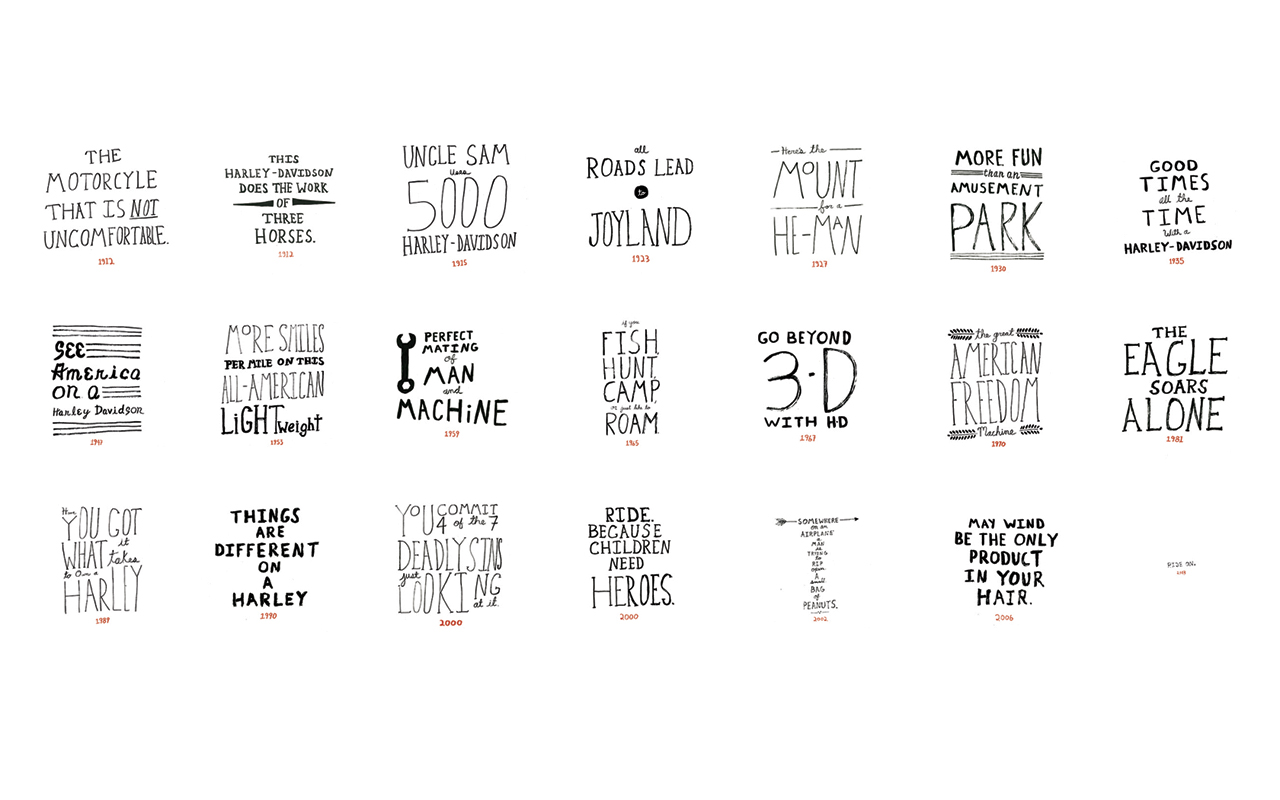 THE
MOTORCYLE
THAT IS NOT
UNCOMFORTABLE.
1912
THIS
HARLEY-DAVIDSON
DOES THE WORK
OF
THREE
HORSES.
1912
UNCLE SAM
Uses
5000
HARLEY-DAVIDSON
1915
all
ROADS LEAD
to
JOYLAND
1923
Here's the
MOUNT
for a
HE-MAN
1927
MORE FUN
than an
AMUSEMENT
PARK
1930
GOOD
TIMES
all the
TIME
With a
HARLEY-DAVIDSON
1935
SEE
America
on a
Harley Davidson
1947
MORE SMILES
PER MILE ON THIS
ALL-AMERICAN
LiGHTweight
1955
PERFECT
MATING
of
MAN
and
MACHiNE
1959
if you
FISH,
HUNT,
CAMP,
or just like to
ROAM.
1965
GO BEYOND
3-D
WITH H-D
1967
the great
AMERICAN
FREEDOM
Machine
1970
THE
EAGLE
SOARS
ALONE
1981
Have
YOU GOT
WHAT it
takes
to Own a
HARLEY
1989
THINGS
ARE
DIFFERENT
ON
A
HARLEY
1990
YOU COMMIT
4 of the 7
DEADLY SINS
just
LOOKING
at it.
2000
RIDE.
BECAUSE
CHILDREN
NEED
HEROES.
2000
SOMEWHERE
on an
AIRPLANE
a
MAN
is
TRYING
to
RIP
open
A
small
BAG
of
PEANUTS.
2002
MAY WIND
BE THE ONLY
PRODUCT
IN YOUR
HAIR.
2006
RIDE ON.